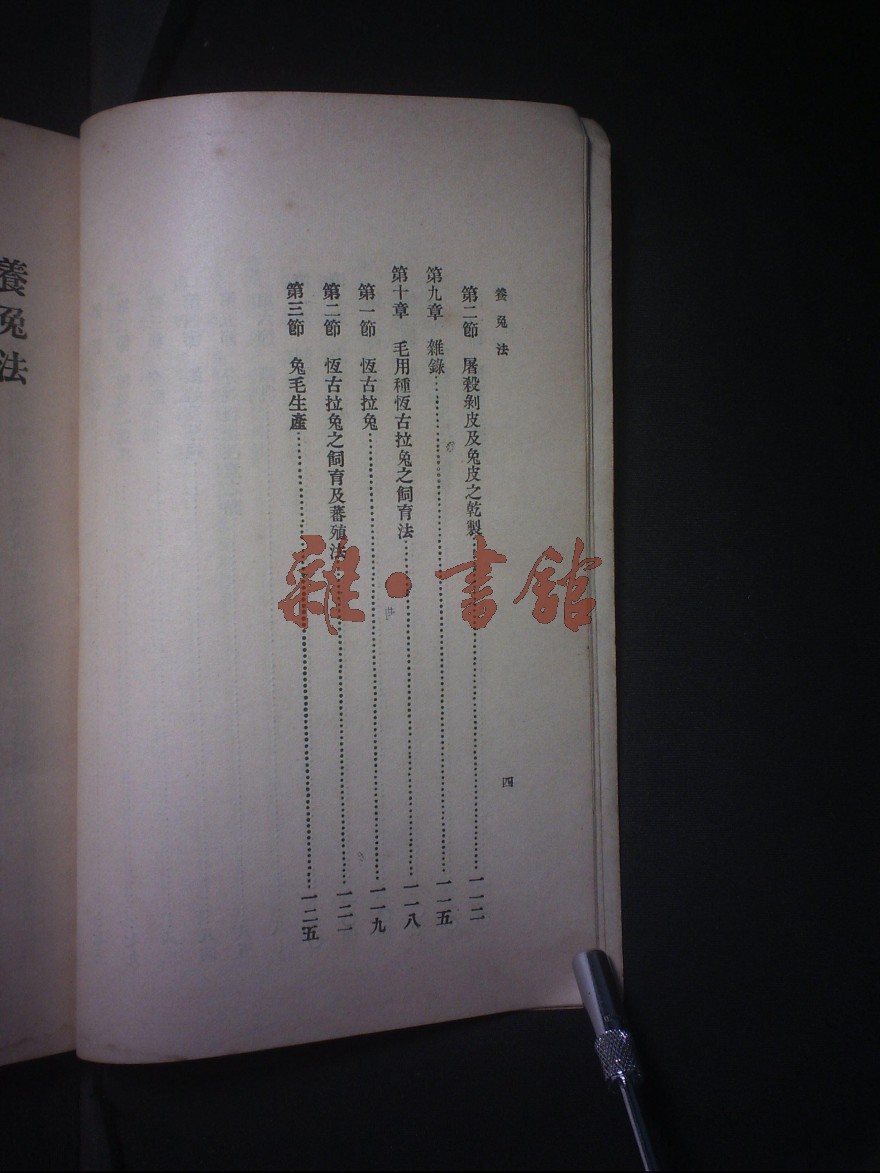 養兔法
四
第二節　屠殺剝皮及兔皮之乾製……一一二
第九章　雜錄……一一五
第十章　毛用種恆古拉兔之飼育法……一一八
第一節　恆古拉兔……一一九
第二節　恆古拉兔之飼育及蕃殖法……一二一
第三節　兔毛生產……一二五
養兔法
雜·書館